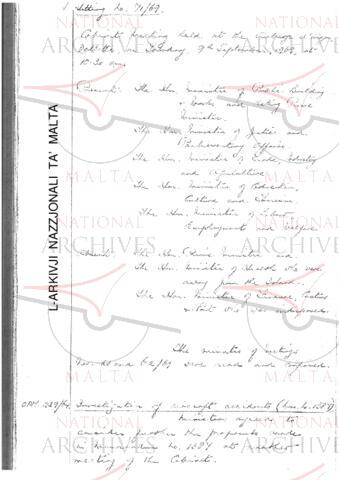 Sitting No. 71/69.
Cabinet meeting held at the
Valletta on Tuesday, 9th September, 1969, at
10.30 a.m.
Present: The Hon. Minister of Public Building
& Works and Acting Prime
Minister.
The Hon. Minister of Justice and
Parliamentary Affairs.
The Hon. Minister of Trade, Industry
and Agriculture
The Hon. Minister of Education,
Culture and Tourism
The Hon. Minister of Labour
Employment and Welfare
Absent: The Hon. Prime Minister and
The Hon. Minister of Health who were
away from the Island.
The Hon. Minister of Finance, Customs
& Port who was indisposed.
The minutes of meetings
Nos. and 62/69 were read and confirmed.
Investigation of aircraft accidents (Memo. No. 1587)
Ministers agreed to
consider further the proposals made
in Memorandum No. 1587 at another
meeting of the Cabinet.
L-ARKIVJI NAZZJONALI TA' MALTA
NATIONAL
ARCHIVES
NATIONAL
ARCHIVES
NATIONAL
ARCHIVES
NATIONAL
ARCHIVES
NATIONAL
ARCHIVES
NATIONAL
ARCHIVES